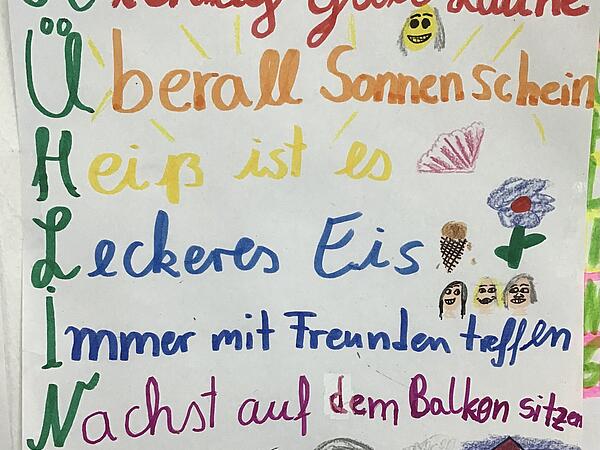 gute Laune
Überall Sonnenschein
Heiß ist es
Leckeres Eis
Immer mit Freunden treffen
Nachst auf dem Balkon sitzen